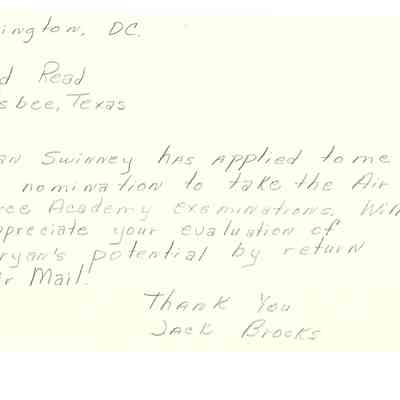 ington, DC.
d Read
sbee, Texas
an Swinney has applied to me
nomination to take the Air
rce Academy examinations. Will
ppreciate your evaluation of
ryan's potential by return
r Mail.
Thank You
Jack Brooks